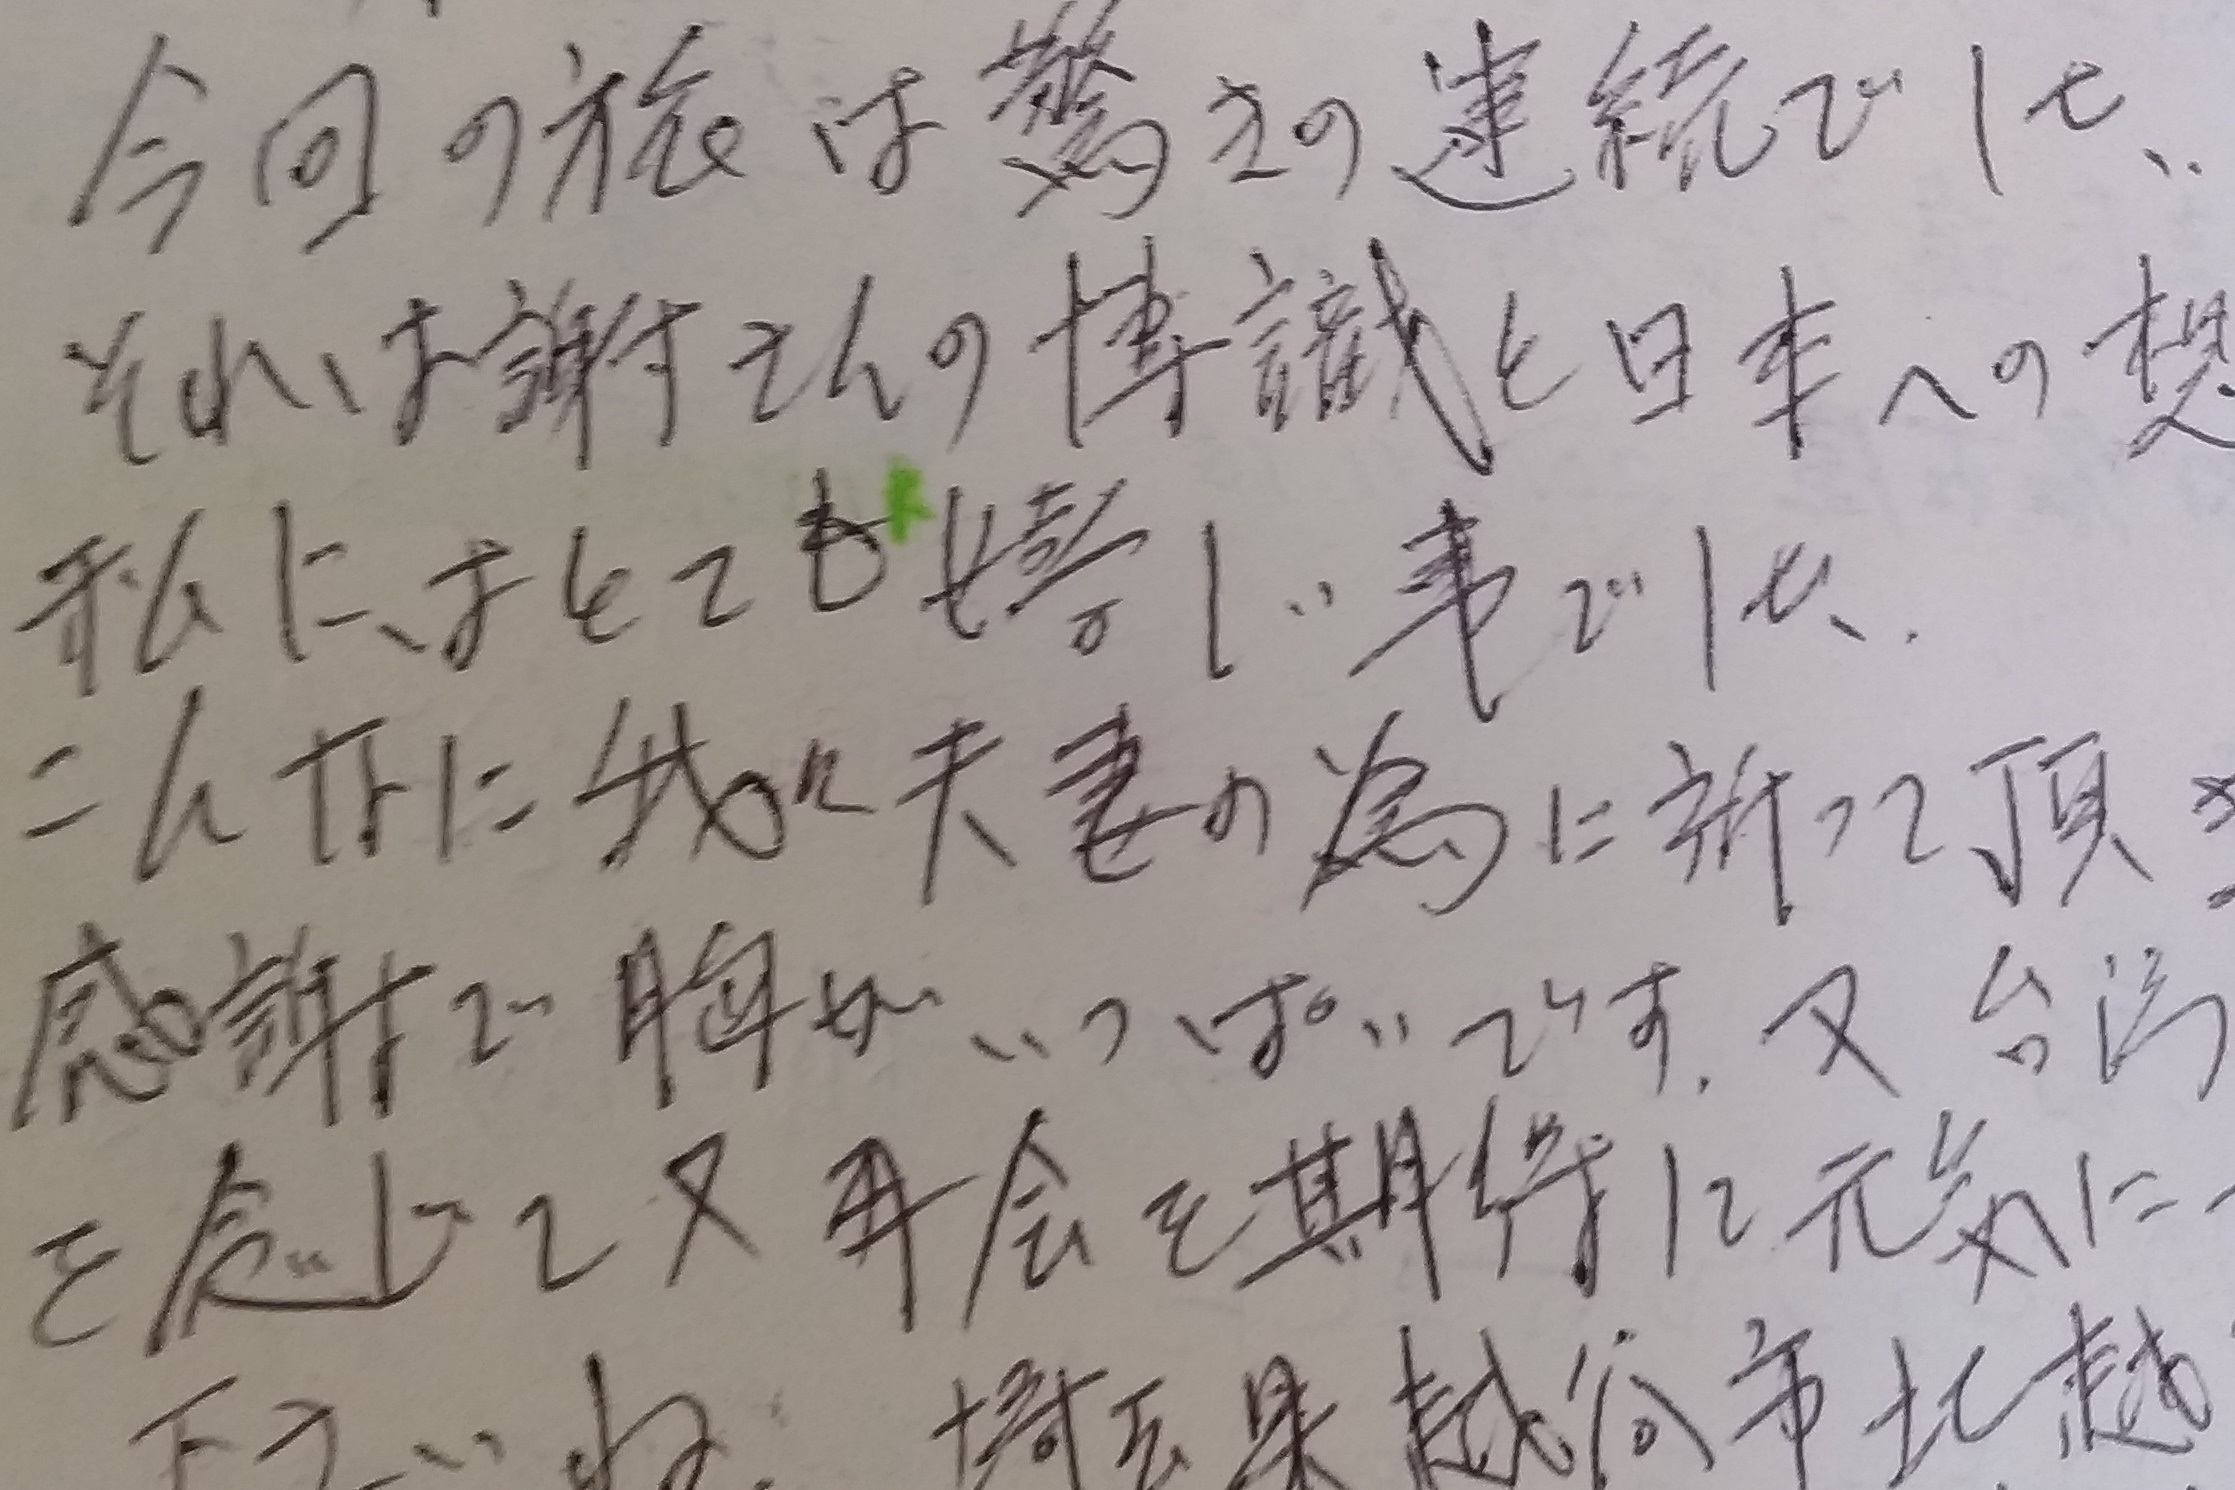 今回の旅は驚きの連続でした、
それは謝さんの博識と日本への想
私にはとても嬉しい事でした.
こんなに我々夫妻の為に祈って頂き
感謝で胸がいっぱいです.又台湾
を念じて又再会を期待して元気に
下さいね. 埼玉県越谷市北越